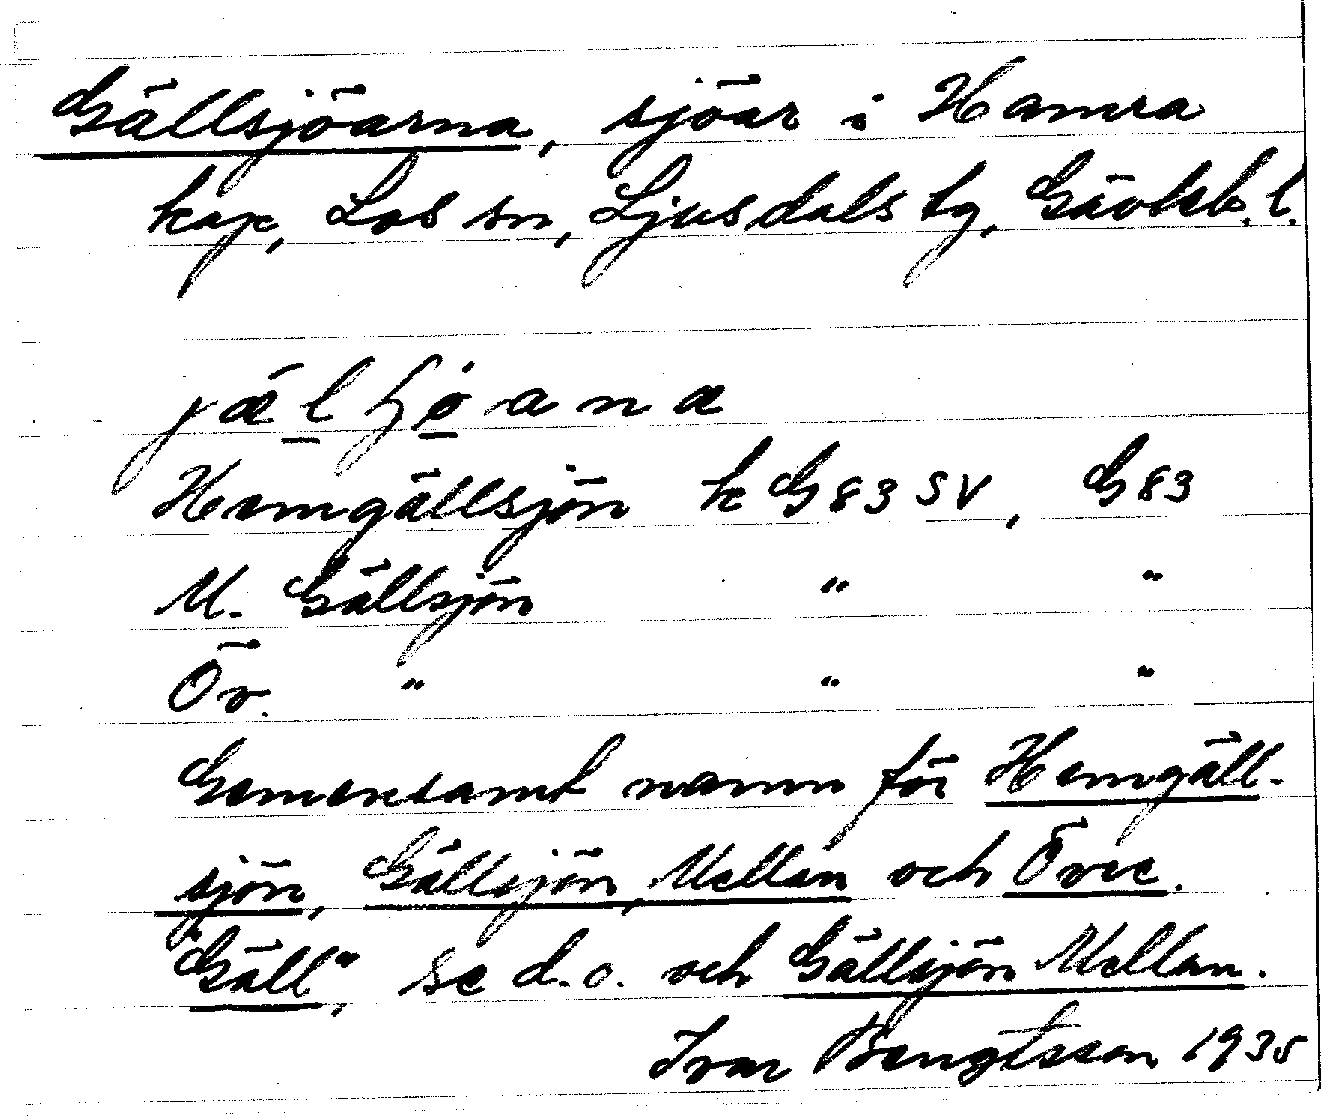 Gällsjöarna, sjöar i Hamra
kap, Los sn, Ljusdals tg, Gävleb. l.
jäl ʃjöana
Hemgällsjön k G83 SV, G83
M. Gällsjön " "
Öv. " " "
Gemensamt namn för Hemgäll-
sjön, Gällsjön, Mellan och Övre.
"Gäll", se d.o. och Gällsjön Mellan.
Ivar Bengtsson 1935